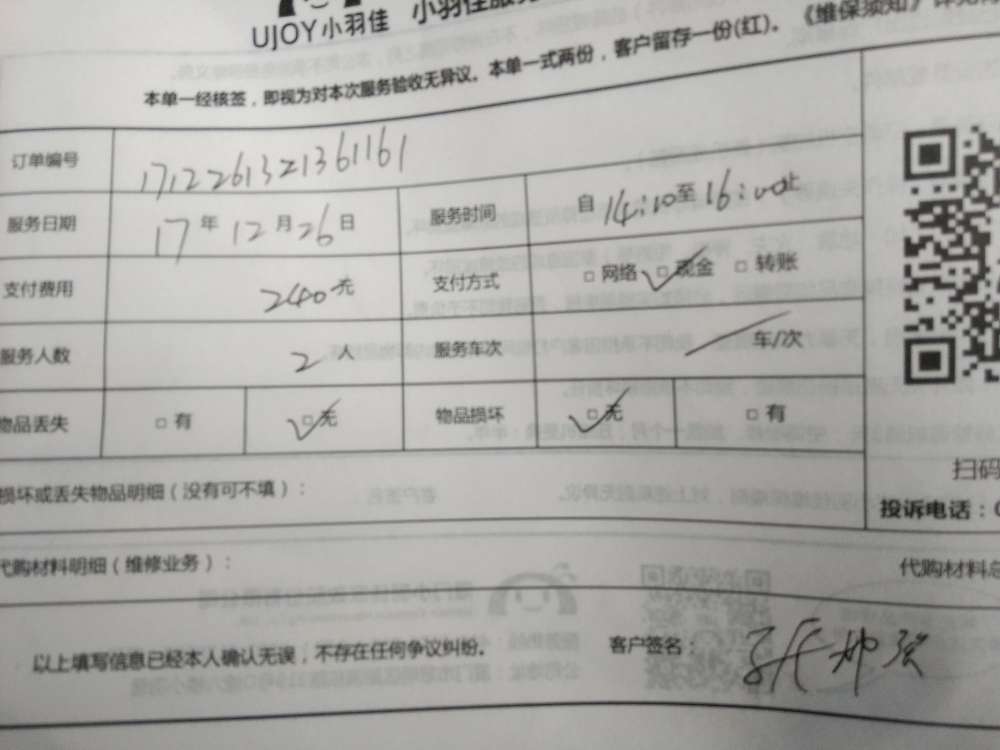 UJOY小羽佳 小羽佳服务
本单一经核签，即视为对本次服务验收无异议。本单一式两份，客户留存一份(红)。《维保须知》详见
订单编号 1712261321361161
服务日期 17年12月26日 服务时间 自14:10至16:00止
支付费用 240元 支付方式 □网络 □现金 □转账
服务人数 2人 服务车次 车/次
物品丢失 □有 □无 物品损坏 □无 □有
损坏或丢失物品明细（没有可不填）：
扫码
投诉电话：
代购材料明细（维修业务）： 代购材料总
以上填写信息已经本人确认无误，不存在任何争议纠纷。 客户签名：